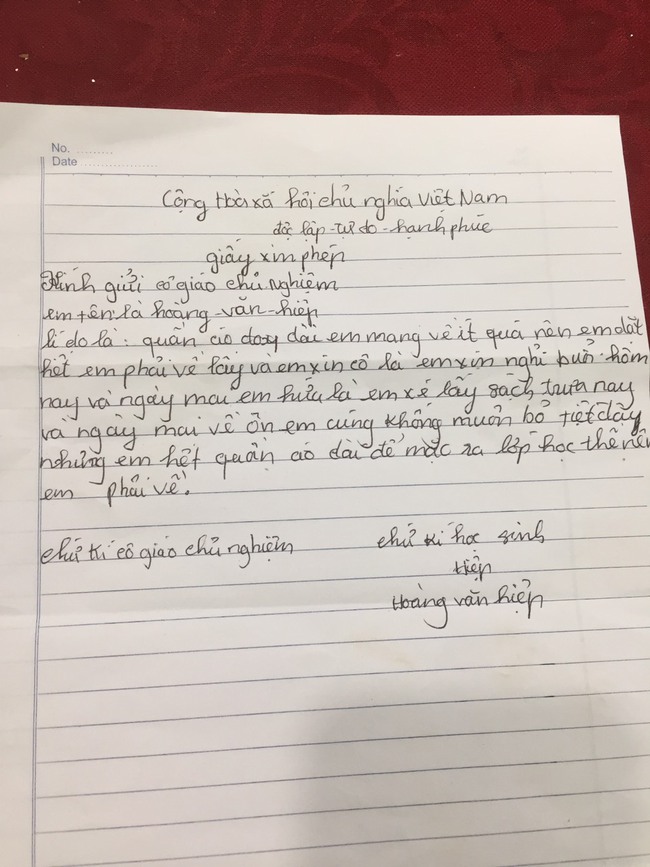 No. ........
Date ....................
Cộng Hòa xã hôi chủ nghĩa Việt Nam
độc lập - tự do - hạnh phúc
giấy xin phép
Kính gửi cô giáo chủ nghiệm
em tên là hoàng - văn - hiệp
lí do là: quần áo dày dài em mang về ít quá nên em dắt
hết em phải về lấy và em xin cô là em xin nghỉ buổi hôm
nay và ngày mai em hứa là em xẽ lấy sách trưa nay
và ngày mai về ôn em cũng không muốn bỏ tiết dậy
nhưng em hết quần áo dài để mặc ra lớp học thế nên
em phải về.
chữ kí cô giáo chủ nghiệm
chữ kí học sinh
Hiệp
Hoàng văn hiệp